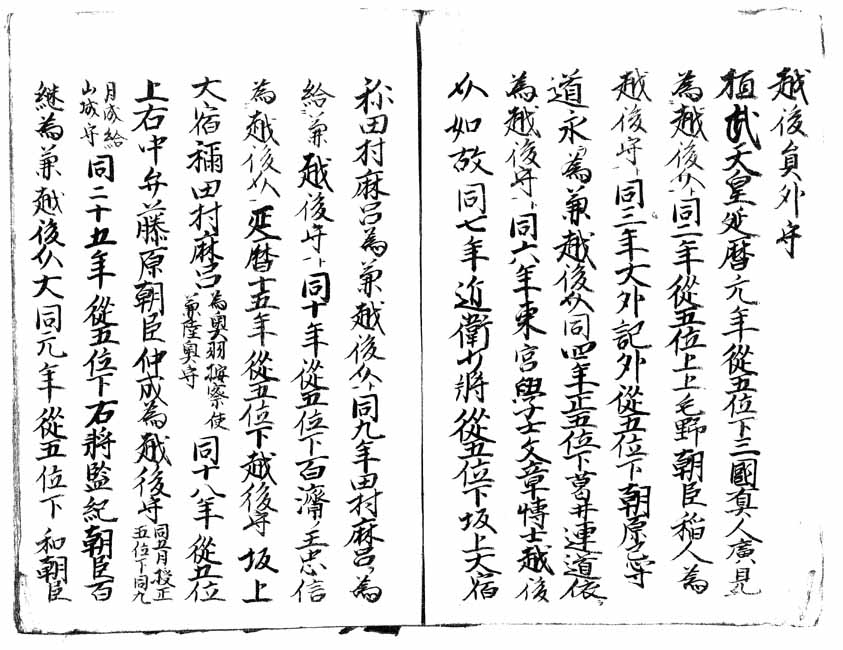 越後員外守
桓武天皇延暦元年從五位下三國真人廣見
為越後介同二年從五位上上毛野朝臣稲人為
越後守同三年大外記外從五位下朝原忌寸
道永為兼越後介同四年正五位下葛井連道依
為越後守同六年東宮學士文章博士越後
介如故同七年近衛少將從五位下坂上大宿
祢田村麻呂為兼越後介同九年田村麻呂為
給兼越後守同十年從五位下百濟王忠信
為越後介延暦十五年從五位下越後守坂上
大宿禰田村麻呂為奥羽按察使兼陸奥守同十八年從五位
上右中弁藤原朝臣仲成為越後守同五月授正五位下同九
月成給山城守同二十五年從五位下右將監紀朝臣百
継為兼越後介大同元年從五位下和朝臣